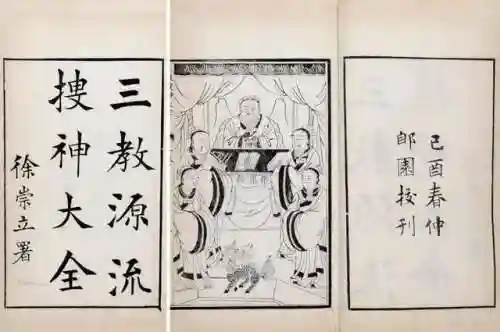 三教源流
搜神大全
徐崇立署
己酉春仲
郋園校刊